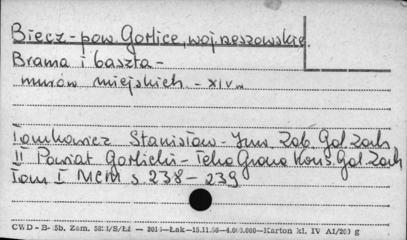 Biecz - pow. Gorlice, woj. rzeszowskie.
Brama i baszta -
murów miejskich. - XIV w
Tomkowicz Stanisław - Inw. Zab. Gal. Zach
II Powiat Gorlicki - Teka Grona Kons. Gal. Zach
Tom I MCM s 238 - 239
CWD - B- 5b. Zam. 5821/S/Łż — 2015—Łak—15.11.56—4.000.000—Karton kl. IV A1/200 g